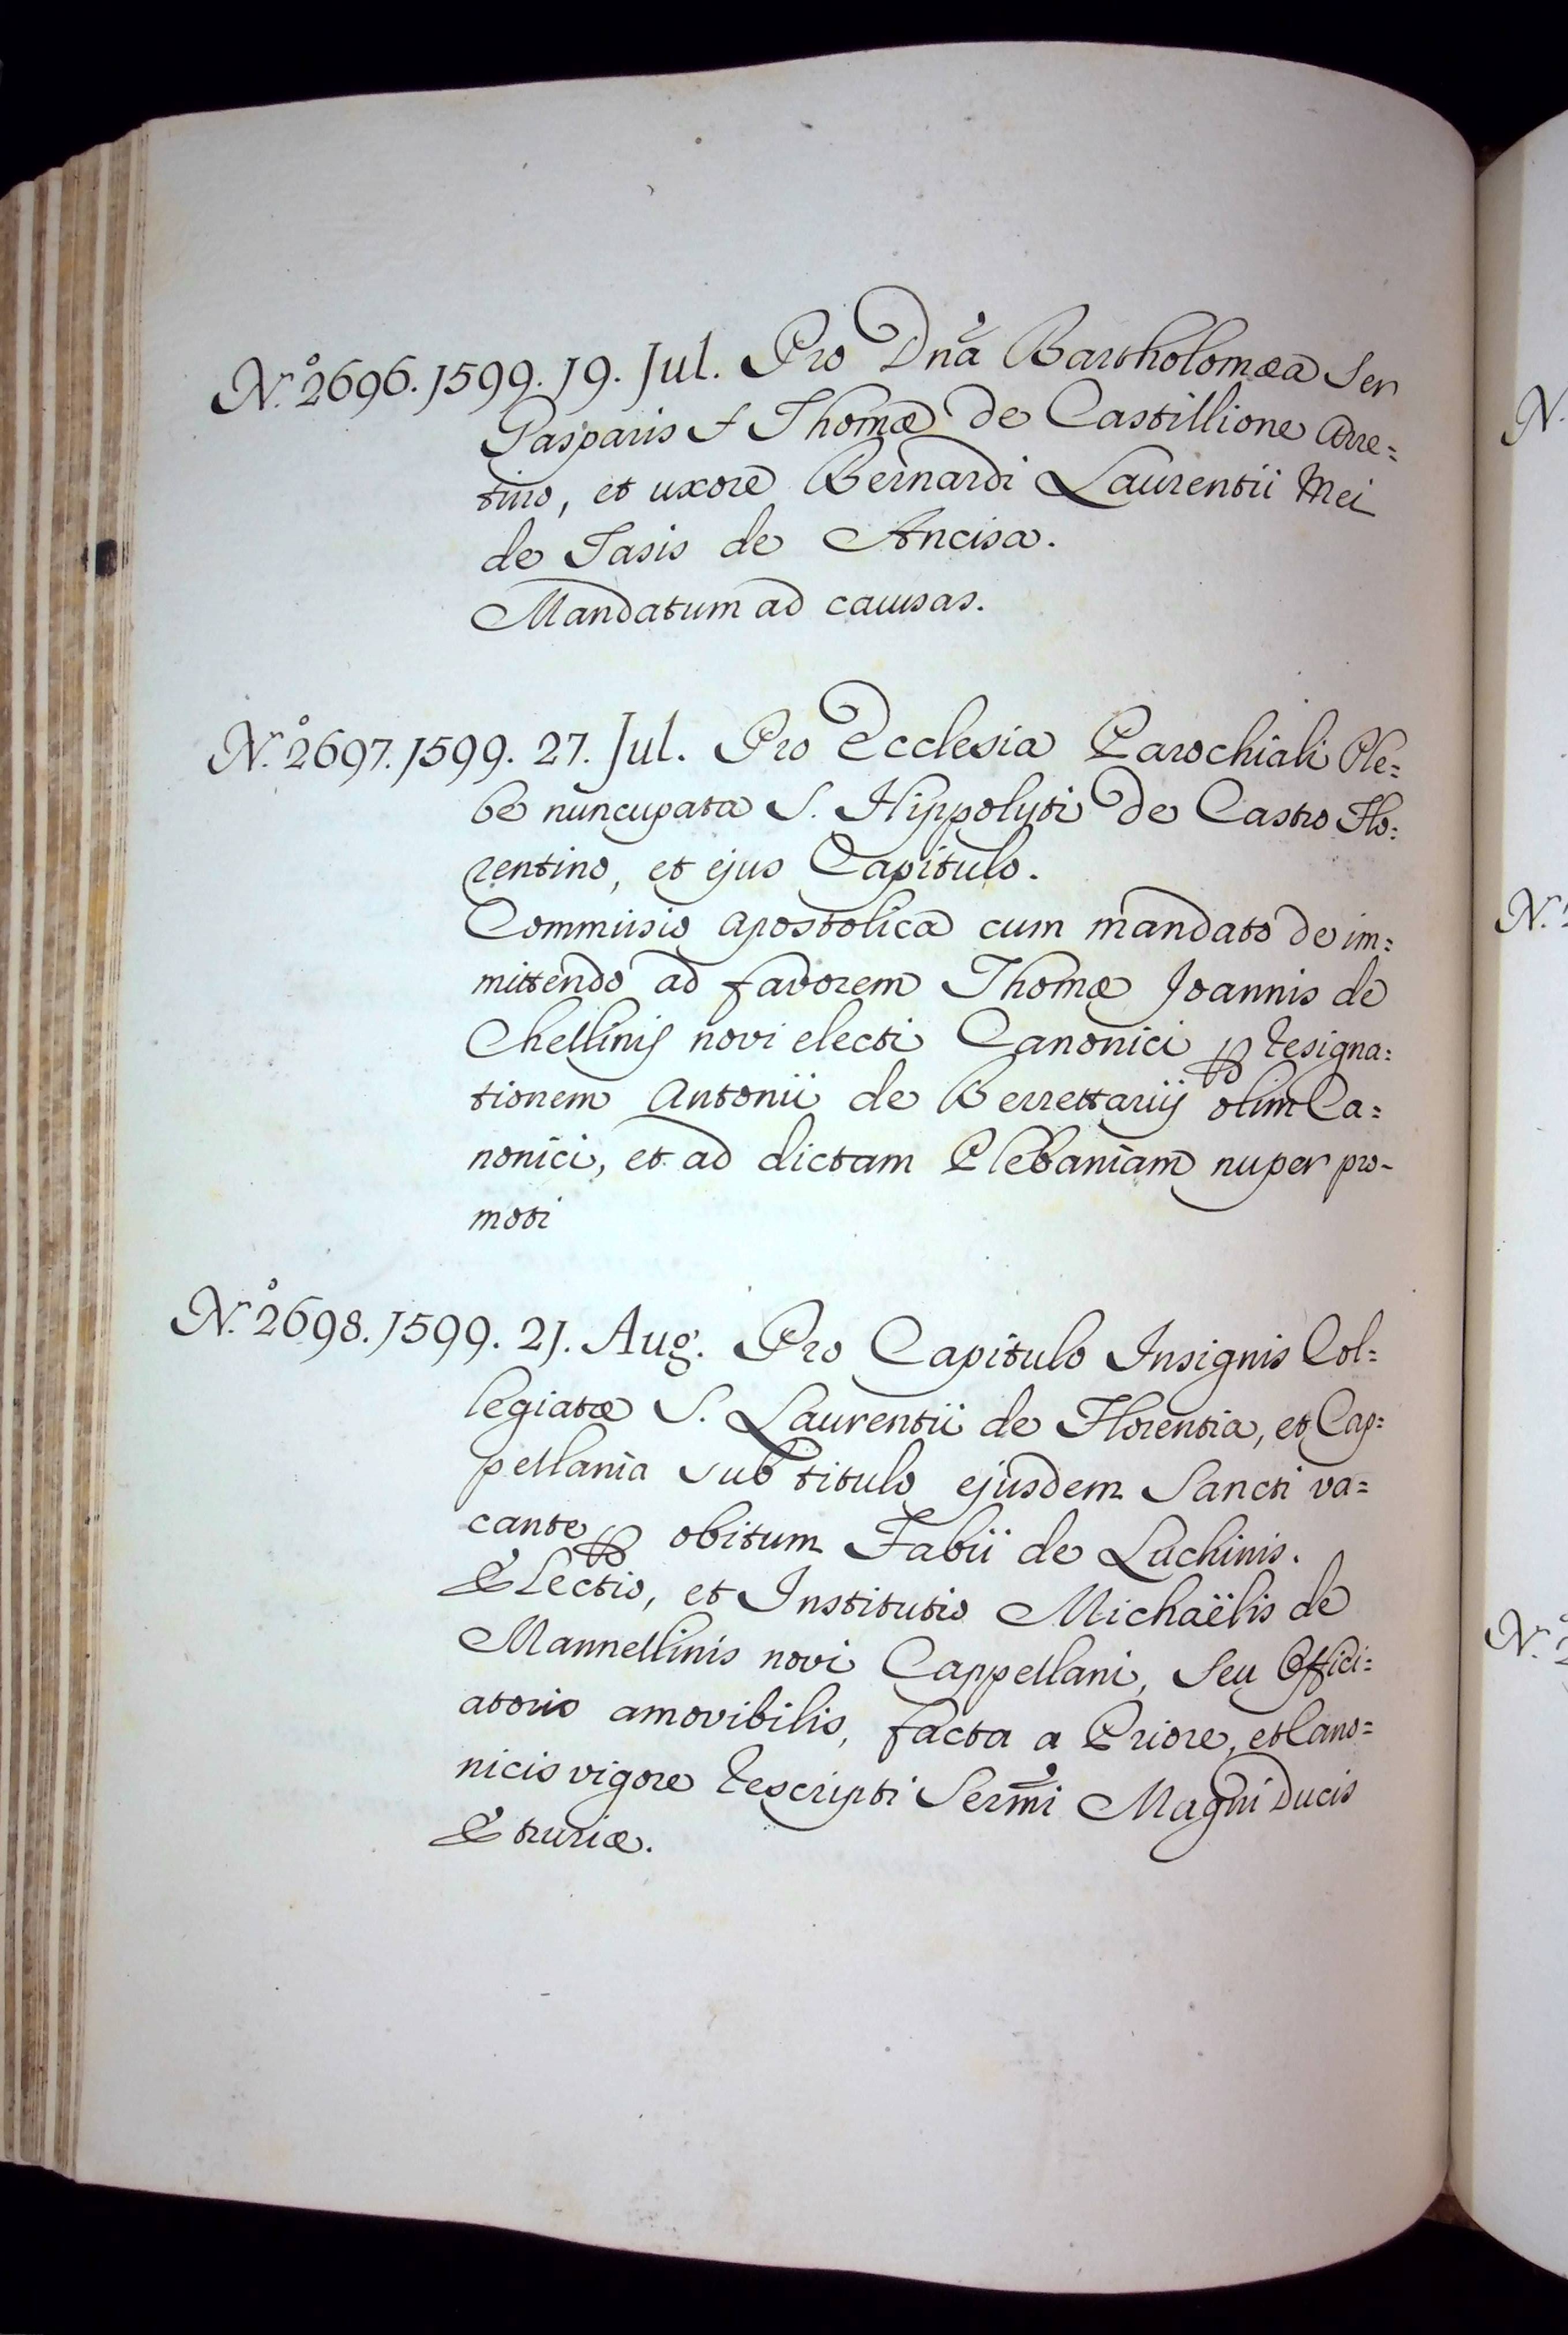 N.º 2696. 1599. 19. Jul. Pro Dnã Bartholomæa Ser
Gasparis f Thomæ de Castillione Arre=
tino, et uxore Bernardi Laurentii Mei
de Tasis de Ancisa.
Mandatum ad causas.
N.º 2697. 1599. 27. Jul. Pro Ecclesia Parochiali Ple=
be nuncupata S. Hippolyti de Castro Flo=
rentino, et ejus Capitulo.
Commissio Apostolica cum mandato de im=
mittendo ad favorem Thomæ Joannis de
Chellinis novi electi Canonici p resigna=
tionem Antonii de Berrettariis olim Ca=
nonici, et ad dictam Plebaniam nuper pro-
moti
N.º 2698. 1599. 21. Aug. Pro Capitulo Insignis Col=
legiatæ S. Laurentii de Florentia, et Cap=
pellania sub titulo ejusdem Sancti va=
cante p obitum Fabii de Luchinis.
Electio, et Institutio Michaëlis de
Mannellinis novi Cappellani, seu Offici=
atoris amovibilis, facta a Priore, et Cano=
nicis vigore rescripti Sermĩ Magni Ducis
Etruriæ.
N.
N.
N.